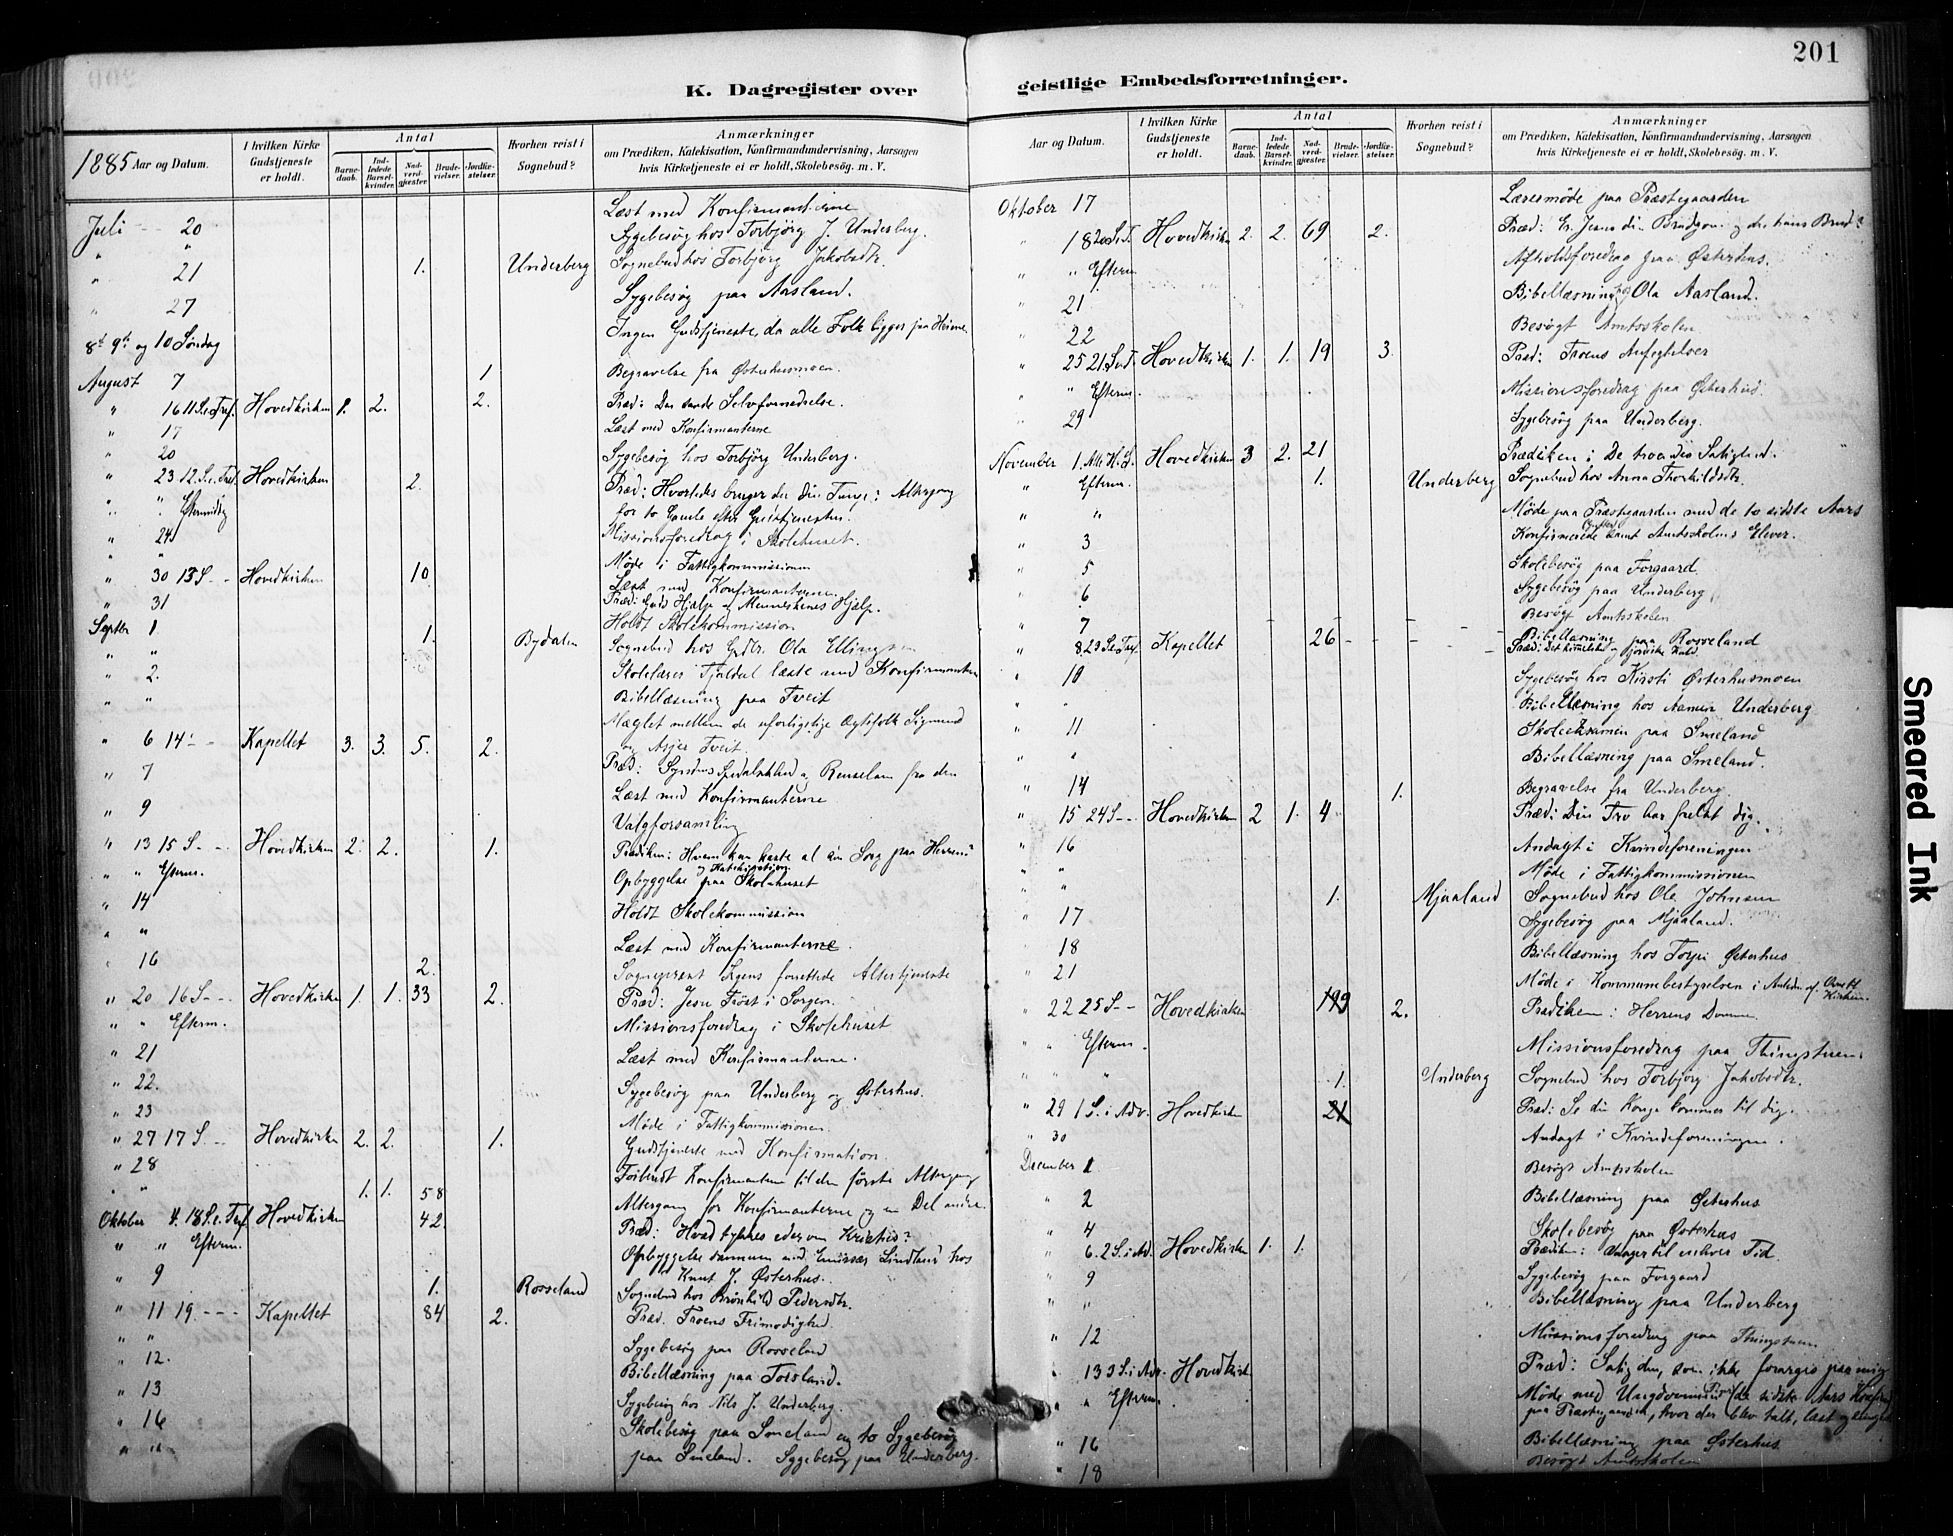 201
K. Dagregister over geistlige Embedsforretninger.
1885 Aar og Datum.
I hvilken Kirke Gudstjeneste er holdt.
Antal
Barnedaab.
Indledede Barselkvinder.
Nadverdgjester
Brudevielser.
Jordfæstelser.
Hvorhen reist i Sognebud?
Anmærkninger
om Prædiken, Katekisation, Konfirmandundervisning, Aarsagen
hvis Kirketjeneste ei er holdt, Skolebesøg. m. V.
Juli 20 Læst med Konfirmanterne
" " Sygebesøg hos Torbjørg J. Underberg.
" 21 1. Underberg Sognebud hos Torbjørg Jakobsdtr.
" 27 Sygebesøg paa Aasland.
8de 9de og 10 Søndag Ingen Gudstjeneste, da alle Folk ligger paa Heiene
August 7 1 Begravelse fra Østerhusmoen.
" 16 11 S. e. Tref. Hovedkirken 1. 2. 2. Præd: Den sande Selvfornedrelse.
" 17 Læst med Konfirmanterne
" 20 Sygebesøg hos Torbjørg Underberg.
" 23 12. S. e. Tref. Hovedkirken 2. Præd: Hvorledes bruger du Din Tunge? Altergang
for to Gamle efter Gudstjenesten.
" " Eftermiddag Missionsforedrag i Skolehuset.
" 24 Møde i Fattigkommissionen
" " Læst med Konfirmanterne.
" 30 13 S. - - Hovedkirken 10 Præd: Guds Hjælp og Menneskenes Hjælp.
" 31 Holdt Skolekommission
Septbr 1 1. Bydalen Sognebud hos Grdbr. Ola Ellingsen
" " Skolelærer Fjaldal læste med Konfirmanterne
" 2. Bibellæsning paa Tveit
" " Mæglet mellem de uforligelige Ægtefolk Sigmund
og Asjer Tveit.
" 6 14 - - Kapellet 3. 3. 5. 2. Præd: Syndens Spedalskhed og Renselsen fra den
" 7 Læst med Konfirmanterne
" 9 Valgforsamling
" 13 15 S - - Hovedkirken 2. 2. 1. Prædiken: Hvem kan kaste al din Sorg paa Herren?
" " Efterm. Opbyggelse og Katekisation paa Skolehuset
" 14 Holdt Skolekommission
" " Læst med Konfirmanterne.
" 16 2. Sogneprest forrettede Altertjeneste
" 20 16 S - - Hovedkirken 1. 1. 33 2. Præd: Jesu Trøst i Sorgen.
" " Efterm. Missionsforedrag i Skolehuset
" 21 Læst med Konfirmanterne.
" 22. Sygebesøg paa Underberg og Østerhus.
" 23 Møde i Fattigkommissionen.
" 27 17 S. - Hovedkirken 2. 2. 1. Gudstjeneste med Konfirmation.
" 28 Forberedt Konfirmanterne til den første Altergang
" " 1. 1. 58 Altergang for Konfirmanterne og en Del andre.
Oktober 4. 18 S. e. Tref. Hovedkirken 42. Præd: Hvad tykkes eder om Kristus?
" " Efterm. Opbyggelse sammen med Emissær Lindland hos
Knut J. Østerhus.
" 9 1. Rosseland Sognebud hos Brønhild Pedersdtr.
" 11 19. - - - Kapellet 84 2. Præd. Troens Frimodighed.
" " Sygebesøg paa Rosseland
" 12. Bibellæsning paa Torsland.
" 13 Sygebesøg hos Nils J. Underberg.
" 16 Skolebesøg paa Smeland og to Sygebesøg
" " paa Smeland. Sygebesøg paa Underberg.
Aar og Datum.
I hvilken Kirke Gudstjeneste er holdt.
Antal
Barnedaab.
Indledede Barselkvinder.
Nadverdgjester
Brudevielser.
Jordfæstelser.
Hvorhen reist i Sognebud?
Anmærkninger
om Prædiken, Katekisation, Konfirmandundervisning, Aarsagen
hvis Kirketjeneste ei er holdt, Skolebesøg. m. V.
Oktober 17 Lærermøde paa Præstegaarden
" 18 20 S. e. T. Hovedkirken 2. 2. 69 2. Præd: Er Jesus din Brudgom og du hans Brud?
" " Efterm Afholdsforedrag paa Østerhus.
" 21 Bibellæsning hos Ola Aasland.
" 22 Besøgt Amtsskolen
" 25 21. S. e. T. Hovedkirken 1. 1. 19 3. Præd: Troens Anfegtelser
" " Efterm. Missionsforedrag paa Østerhus.
" 29 Sygebesøg paa Underberg.
November 1. Alle H. D. Hovedkirken 3 2. 21 Prædiken: De troendes Salighed.
" Efterm. 1. Underberg Sognebud hos Anna Thorkildsdtr.
" " Møde paa Præstegaarden med de to sidste Aars
Konfirmerede samt Amtsskolens Elever.
" 3 Skolebesøg paa Forgaard.
" 5 Sygebesøg paa Underberg
" 6 Besøgt Amtsskolen
" 7 Bibellæsning paa Rosseland
" 8 23 S. e. Tref. Kapellet 26 Præd: Det himmelske - jordiske Kald.
" 10 Sygebesøg hos Kirsti Østerhusmoen
" " Bibellæsning hos Aamun Underberg
" 11 Skoleeksamen paa Smeland
" " Bibellæsning paa Smeland.
" 14 1. Begravelse fra Underberg.
" 15 24 S - - Hovedkirken 2 1. 4 Præd: Din Tro har frelst dig.
" 16 Andagt i Kvindeforeningen
" " Møde i Fattigkommissionen
" " 1. Mjaaland Sognebud hos Ole Johnsen
" 17 Sygebesøg paa Mjaaland.
" 18 Bibellæsning hos Torjei Østerhus
" 21 Møde i Kommunebestyrelsen i Anledn. af Ovn til Kirken.
" 22 25 S - - Hovedkirken 2. Prædiken: Herrens Domme
" " Efterm. Missionsforedrag paa Thingstuen.
" " 1. Underberg Sognebud hos Torbjørg Jakobsdtr.
" 29 1 S. i Adv. Hovedkirken 21 Præd: Se din Konge kommer til dig.
" 30 Andagt i Kvindeforeningen.
December 1 Besøgt Amtsskolen
" 2 Bibellæsning paa Østerhus
" 4 Skolebesøg paa Østerhus
" 6. 2 S. i Ad. Hovedkirken 1. 1. Prædiken: Vaager til enhver Tid.
" 9 Sygebesøg paa Forgaard
" " Bibellæsning paa Underberg
" 12 Missionsforedrag paa Thingstuen
" 13 3 S. i Adv. Hovedkirk Præd: Salig den, som ikke forarges paa mig
" " Efterm. Møde med Ungdommen (de sidste Aars Konfirm
paa Præstegaarden, hvor der blev talt, læst og
" 16 Bibellæsning paa Østerhus
" 18 Besøgt Amtsskolen
Smeared Ink